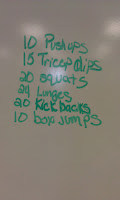 10 Pushups
15 Tricep dips
20 squats
24 Lunges
20 Kickbacks
10 box jumps